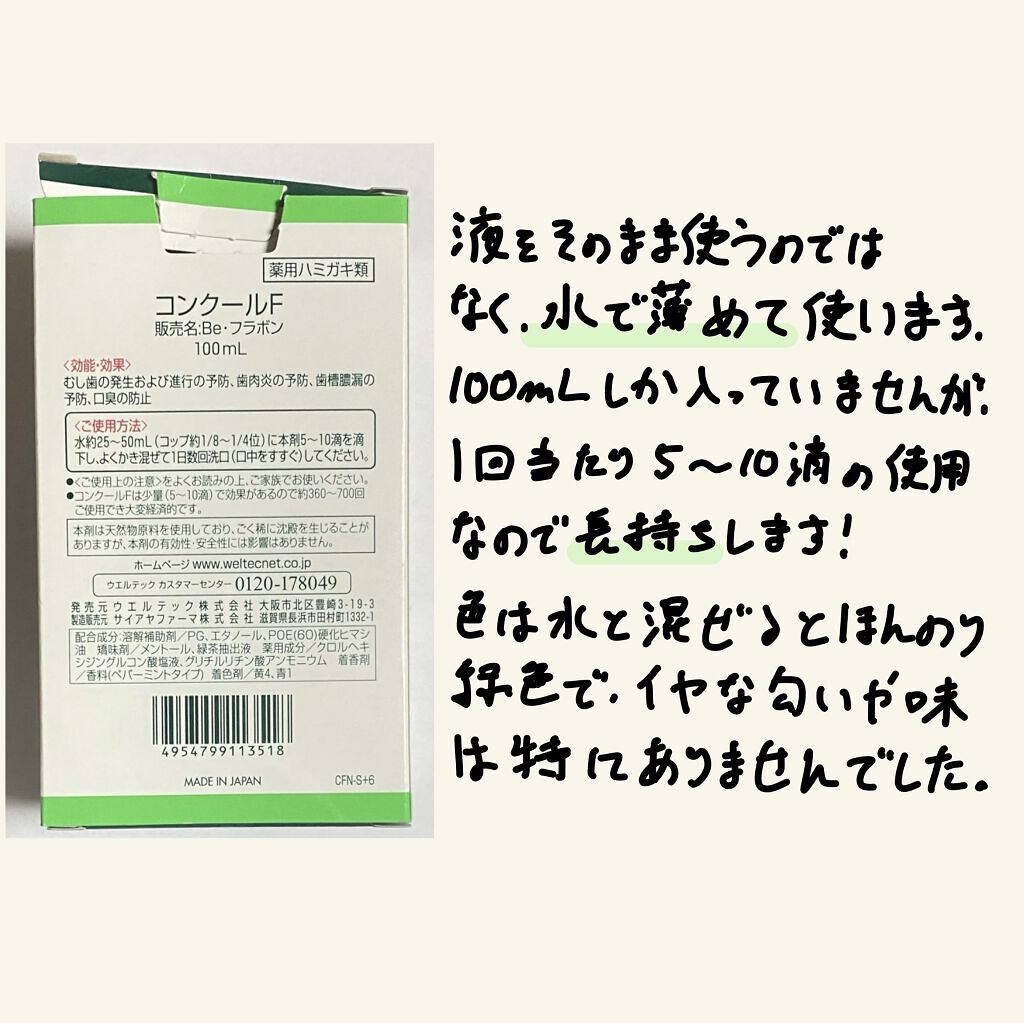 薬用ハミガキ類
コンクールF
販売名:Be・フラボン
100mL
〈効能・効果〉
むし歯の発生および進行の予防、歯肉炎の予防、歯槽膿漏の
予防、口臭の防止
〈ご使用方法〉
水約25〜50mL(コップ約1/8〜1/4位)に本剤5〜10滴を滴
下し、よくかき混ぜて1日数回洗口(口中をすすぐ)してください。
●〈ご使用上の注意〉をよくお読みの上、ご家族でお使いください。
●コンクールFは少量(5〜10滴)で効果があるので約360〜700回
ご使用でき大変経済的です。
本剤は天然物原料を使用しており、ごく稀に沈殿を生じることが
ありますが、本剤の有効性・安全性には影響はありません。
ホームページ www.weltecnet.co.jp
ウエルテック カスタマーセンター 0120-178049
発売元 ウエルテック株式会社 大阪市北区豊崎3-19-3
製造販売元 サイアヤファーマ株式会社 滋賀県長浜市田村町1332-1
配合成分:溶解補助剤/PG、エタノール、POE(60)硬化ヒマシ
油 矯味剤/メントール、緑茶抽出液 薬用成分/クロルヘキ
シジングルコン酸塩液、グリチルリチン酸アンモニウム 着香剤
/香料(ペパーミントタイプ) 着色剤/黄4、青1
4954799113518
MADE IN JAPAN
CFN-S+6
液をそのまま使うのでは
なく、水で薄めて使います。
100mLしか入っていませんが、
1回当たり5〜10滴の使用
なので長持ちします!
色は水と混ぜるとほんのり
緑色で、イヤな匂いや味
は特にありませんでした。